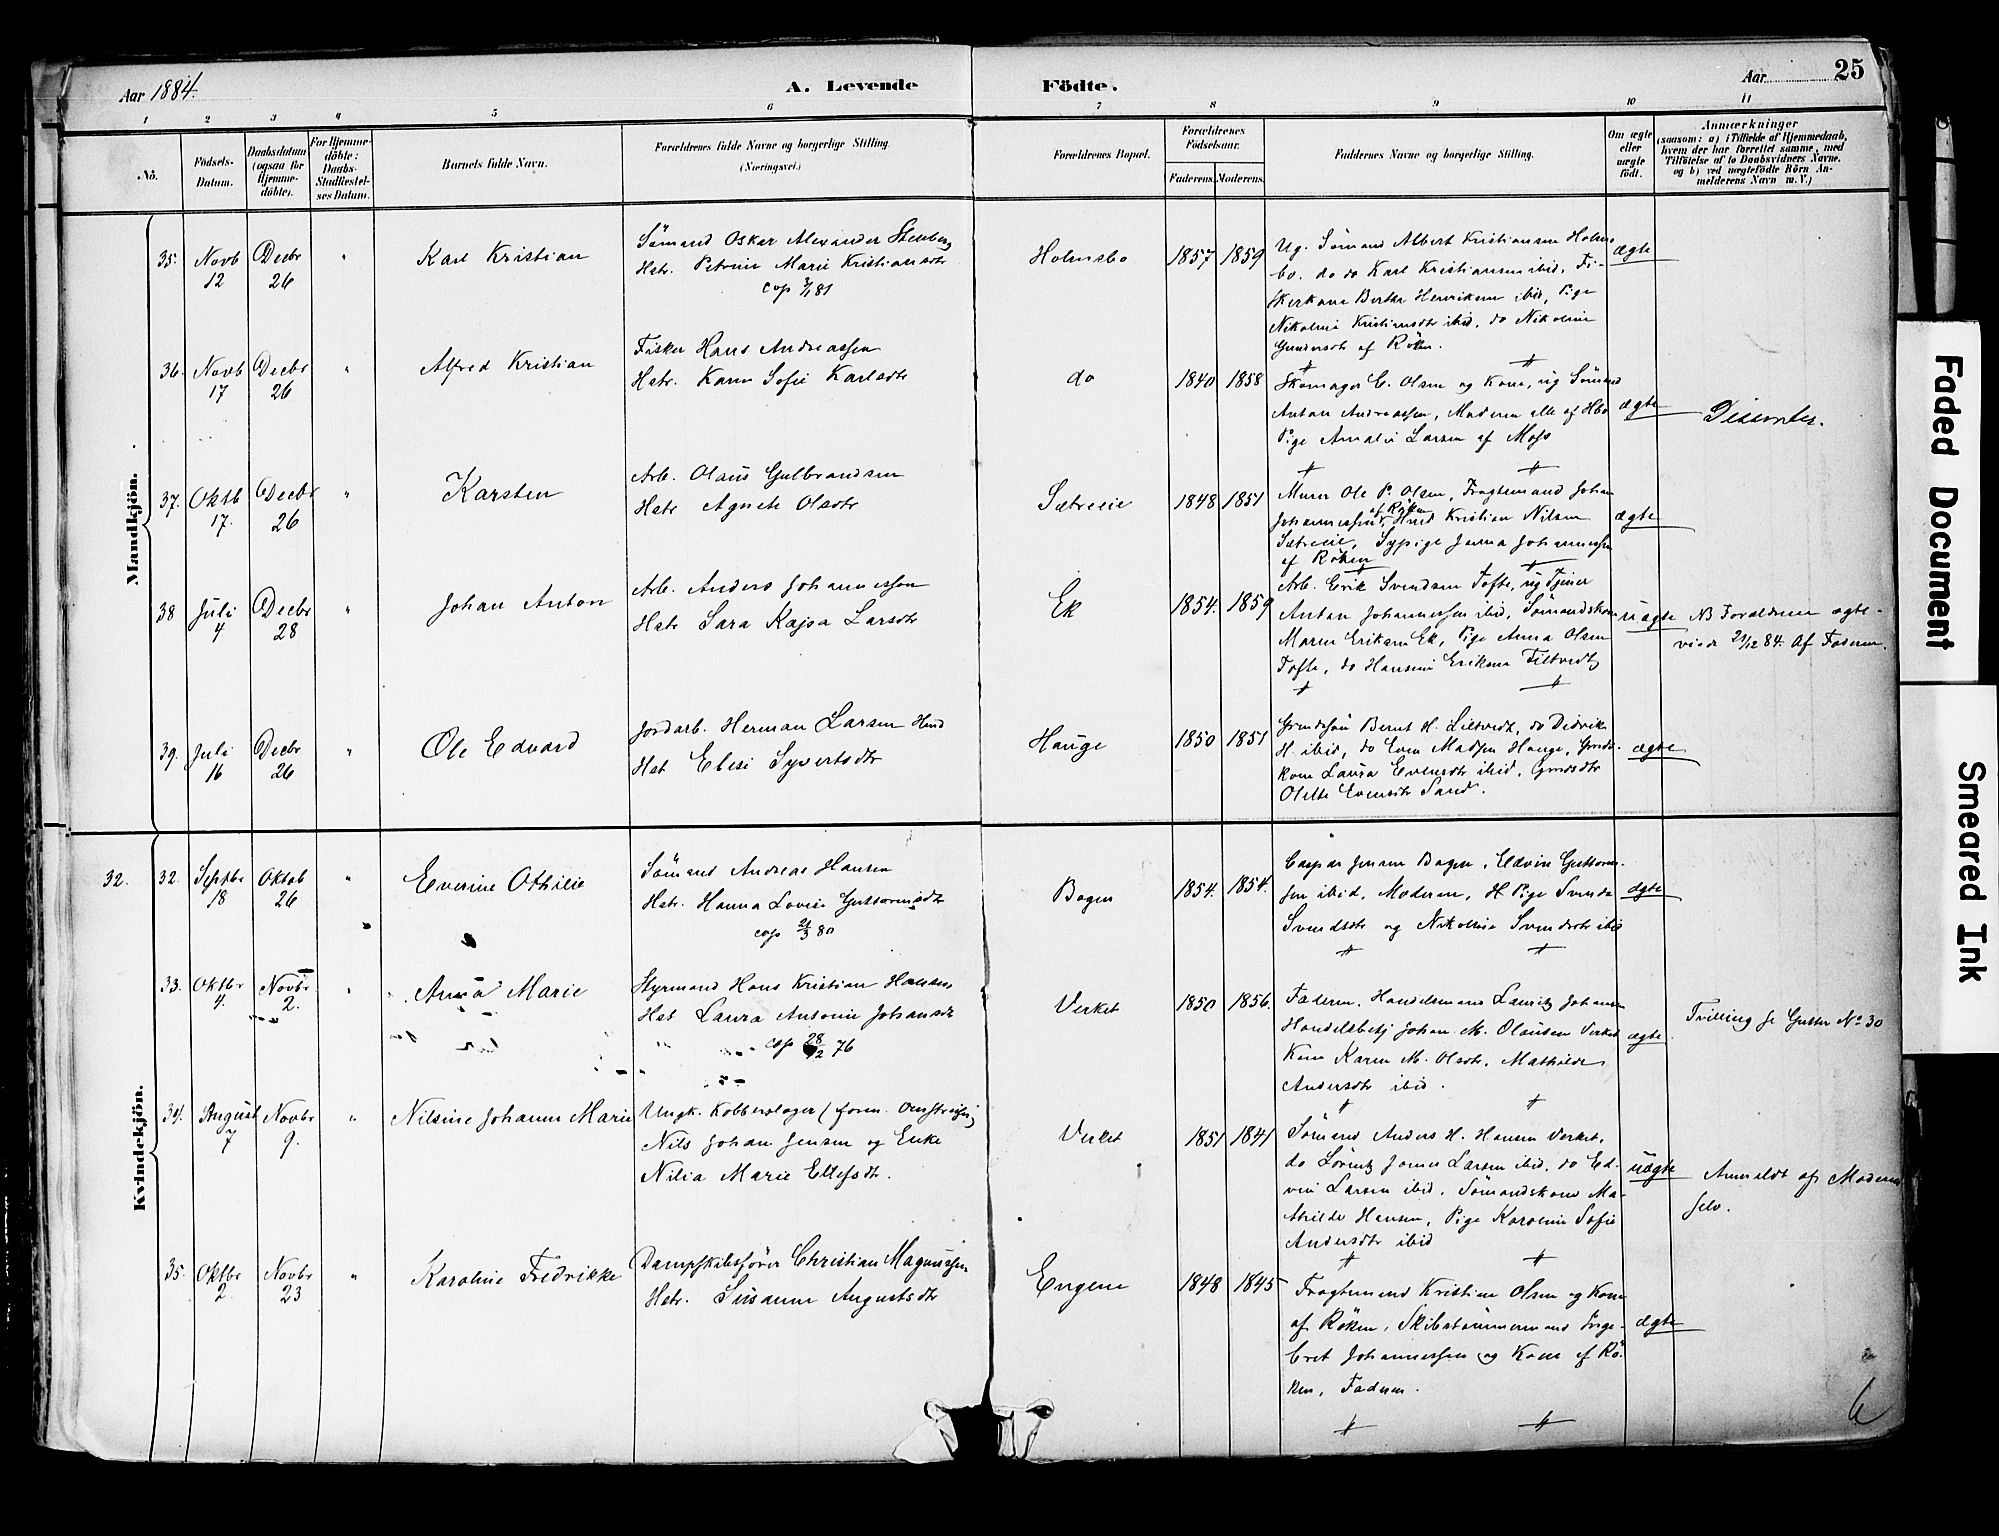 Aar 1884.
A. Levende Födte.
Aar
25
1 2 3 4 5 6 7 8 9 10 11
No.
Födsels-
Datum.
Daabsdatum
(ogsaa for
Hjemme-
döbte).
For Hjemme-
döbte:
Daabs-
Stadfæstel-
ses Datum.
Barnets fulde Navn.
Forældrenes fulde Navne og borgerlige Stilling.
(Næringsvei.)
Forældrenes Bopæl.
Forældrenes
Födselsaar.
Faderens. Moderens.
Faddernes Navne og borgerlige Stilling.
Om ægte
eller
uægte
födt.
Anmærkninger
(saasom: a) i Tilfælde af Hjemmedaab,
hvem der har forrettet samme, med
Tilföielse af to Daabsvidners Navne.
og b) ved uægtefödte Börn An-
melderens Navn m.V.)
Mandkjön.
35. Novb 12
Decbr 26
"
Karl Kristian
Sömand Oskar Alexander Stenberg
Hstr. Petrine Marie Kristiansdtr
cop 3/1 81
Holmsbo
1857 1859
Ug. Sömand Albert Kristiansen Holms
bo. do do Karl Kristiansen ibid, Fi-
skerkone Berthe Henriksen ibid, Pige
Nikoline Kristiansdtr ibid, do Nikoline
Gundersdtr af Röken.
ægte
36. Novb 17
Decbr 26
"
Alfred Kristian
Fisker Hans Andreassen
Hstr. Karen Sofie Karlsdtr
do
1840 1858
Skomager C. Olsen og Kone, ug Sömand
Anton Andreassen, Moderen alle af Hbo
Pige Amalie Larsen af Moss
ægte
Dissenter.
37. Oktb 17.
Decbr 26
"
Karsten
Arb. Olaus Gulbrandsen
Hstr Agnete Olsdtr
Sætreeie
1848 1851
Murer Ole P. Olsen, Fragtemand Johan
Johannessen af Röken Hmd Kristian Nilsen
Sætreeie, Sypige Johannessen
af Röken
ægte
38 Juli 4
Decbr 28
"
Johan Anton
Arb. Anders Johannessen
Hstr Sara Kajsa Larsdtr
Ek
1854. 1859
Arb. Erik Svendsen Tofte, ug Tjener
Anton Johannessen ibid, Sömandskone
Maren Eriksen Ek, Pige Anna Olsen
Tofte, do Hansine Eriksen Filtvedt
uægte
NB Forældrene ægte-
viede 21/12 84. Af Faderen.
39. Juli 16
Decbr 26
"
Ole Edvard
Jordarb. Herman Larsen Hmd
Hst Elesi Syvertsdtr
Hauge
1850 1851
Grundejer Bernt H. do Didrik
H. ibid, do Even Madsen Hauge, Grdb.
kone Laura Evensdtr ibid,
Olette Evensdtr Sand.
ægte
Kvindekjön.
32. 32. Septbr 18
Oktob 26
"
Everine Othilie
Sömand Andreas Hansen
Hstr. Hanna Lovise Guttormsdtr
cop 21/3 80
Bogen
1854. 1854.
Caspar Jensen Bogen, Edvin Guttorm-
sen ibid, Moderen, H. Pige
Svendsdtr og Nikoline Svendsdtr ibid
ægte
33. Oktbr 4.
Novbr 2.
"
Anna Marie
Styrmand Hans Kristian Hansen
Hst Laura Antonie Johansdtr
cop 28/12 76
Verket
1850 1856.
Faderen, Handelsmand Lauritz Johansen
Handelsbetj Johan M. Olausen Verket
Kone Karen M. Olsdtr, Mathilde
Andersdtr ibid.
ægte
Tvilling se Gutter No 30
34. August 7
Novbr 9.
"
Nilsine Johanne Marie
Ungk. Kobberslager (form. Omstreifer)
Nils Johan Jensen og Enke
Nilia Marie Ellefsdtr.
Verket
1851 1841
Sömand Anders H. Hansen Verket,
do Lörentz Larsen ibid, do Ed-
vin Larsen ibid, Sömandskone Ma-
thilde Hansen, Pige Karoline Sofie
Andersdtr ibid
uægte
Anmeldt af Moderen
selv.
35. Oktbr 2
Novbr 23
"
Karoline Fredrikke
Dampskibsförer Christian Magnussen
Hstr. Susanne Augustsdtr
Engene
1848 1845
Fragtemand Kristian Olsen og Kone
af Röken, Skibstömmermand Inge-
bret Johannessen og Kone af Rö-
ken, Faderen.
ægte
Faded Document
Smeared Ink